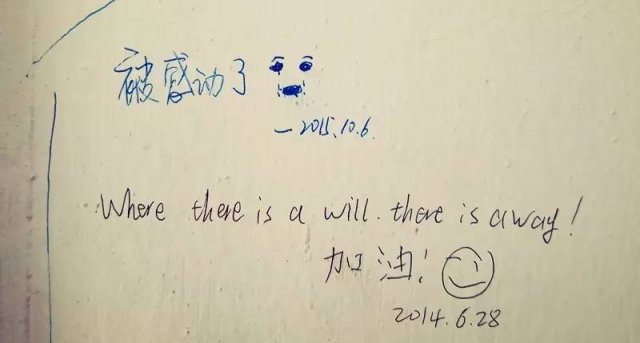 被感动了
—2015.10.6.
Where there is a will. there is away!
加油!
2014.6.28